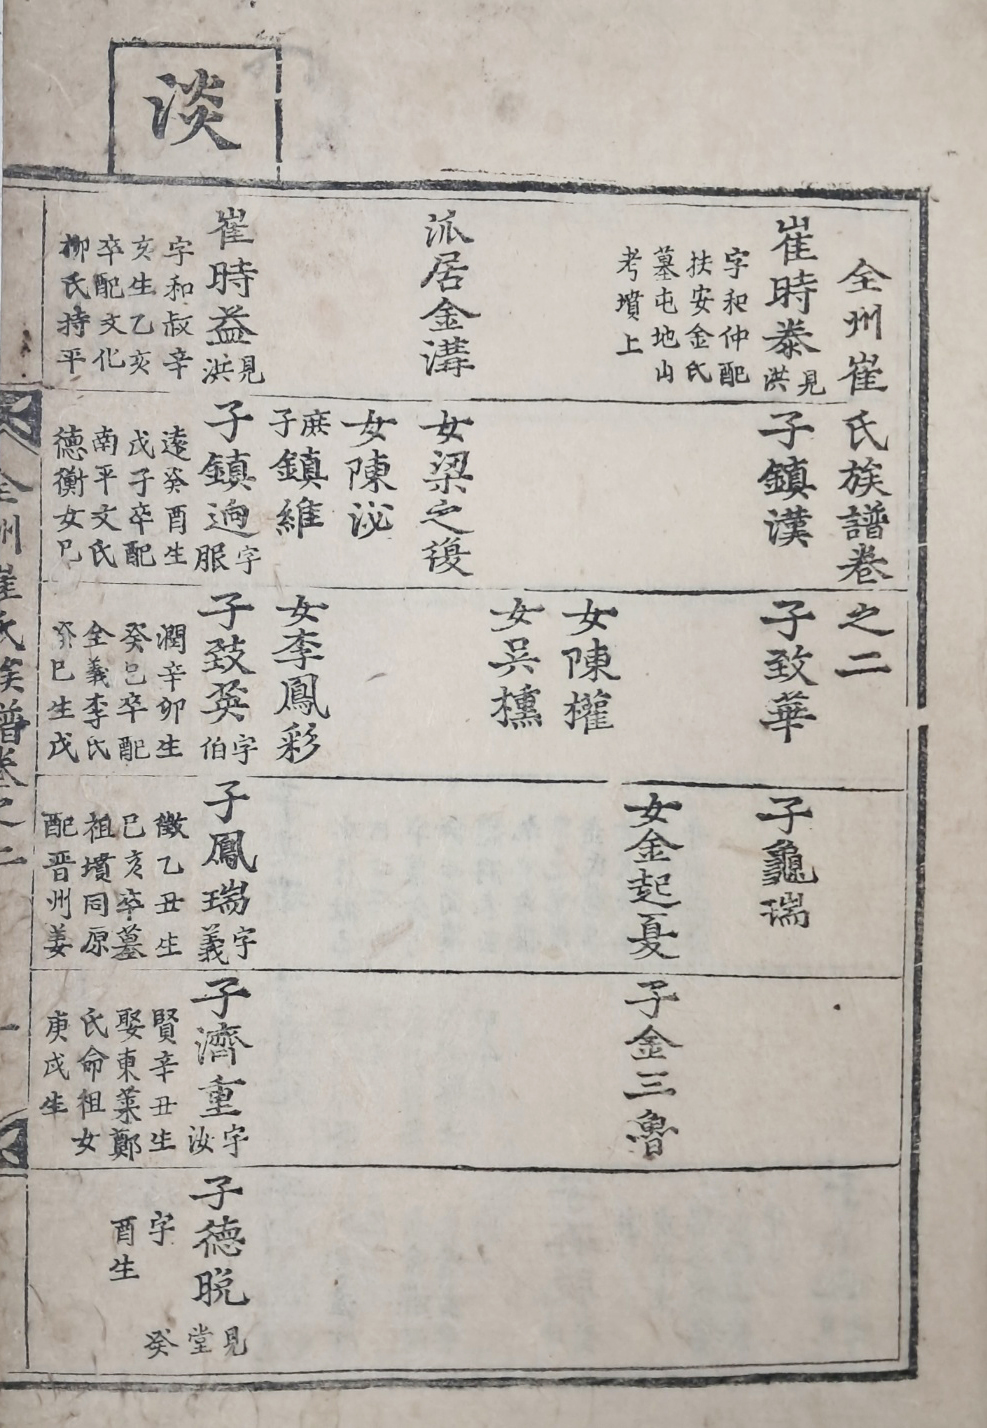 淡
全州崔氏族譜卷之二
崔時泰見洪
字和仲配
扶安金氏
墓屯地山
考墳上
派居金溝
崔時益見洪
字和叔辛
亥生乙亥
卒配文化
柳氏持平
子鎮漢
女梁之𧫴
女陳泌
庶子鎮維
子鎮逈字服
遠癸酉生
戊子卒配
南平文氏
德衡女己
子致華
女陳權
女吳櫄
女李鳳彩
子致英字伯
潤辛卯生
癸巳卒配
全義李氏
癸巳生戊
子龜瑞
女金起夏
子鳳瑞字義
徵乙丑生
己亥卒墓
祖墳同原
配晋州姜
子金三魯
子濟重字汝
賢辛丑生
娶東萊鄭
氏命祖女
庚戌生
子德晩見堂
字 癸
酉生
全州崔氏族譜卷之二
一